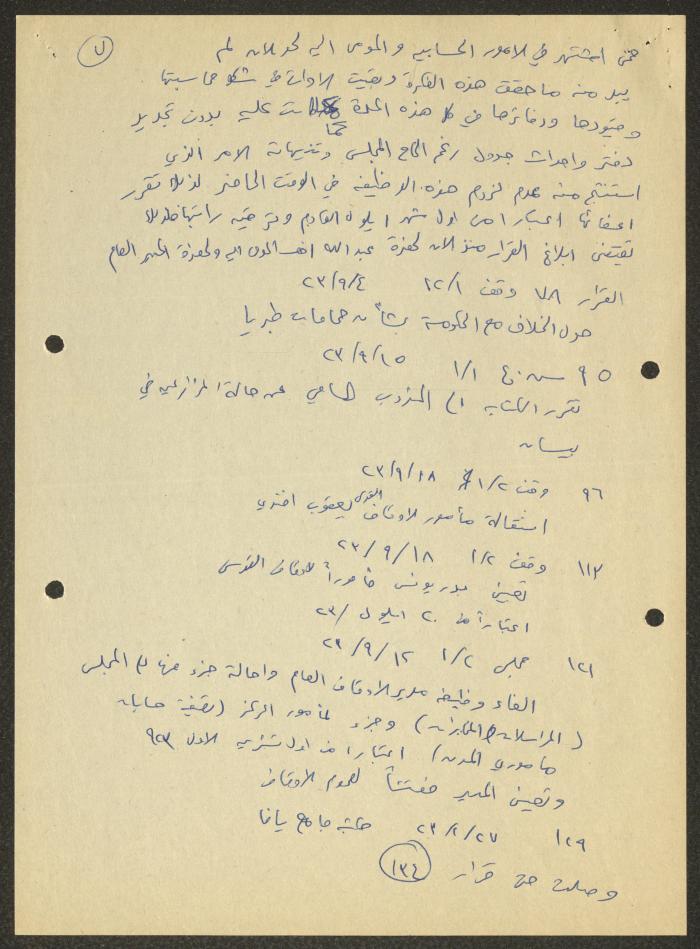 ٧
حتى اشتهر في الامور الحسابية والمومى اليه لحد الان لم
يبد منه ما حقق هذه الفكرة وبقيت الاوقاف في محاسبتها
وقيودها ودفاترها في هذه المدة كما كانت عليه بدون تجديد
دفتر واحداث جدول رغم الحاح المجلس وتنبيهاته الامر الذي
استنتج منه عدم لزوم هذه الوظيفة في الوقت الحاضر لذلك تقرر
اعفائها اعتبارا من اول شهر ايلول القادم وترقية راتبها
تقتضي ابلاغ القرار منذ الان لحضرة عبد الله المومى اليه ولحضرة المدير العام
القرار ٧٨ وقف ١٢/١ ٢٣/٩/٤
حول الخلاف مع الحكومة بشأن حمامات طبريا
٩٥ ١/١ ٢٣/٩/١٥
تقرر الكتابة الى المندوب السامي عن حالة المزارعين في
بيسان
٩٦ وقف ١/٢ ٢٣/٩/١٨
استقالة مأمور اوقاف القدس يعقوب افندي
١١٣ وقف ١/٢ ٢٣/٩/١٨
تعيين بدر يونس مأموراً لاوقاف القدس
اعتباراً من ٢٠ ايلول ٢٣/
١٢١ مجلس ١/٢ ٢٣/٩/١٢
الغاء وظيفة مدير الاوقاف العام واحالة جزء منها الى المجلس
(المراسلات والمخابرات) وجزء لمأمور المركز (تصفية حسابات
مأموري المدن) اعتبارا من اول تشرين الاول ٩٢٣
وتعيين المدير مفتشاً لعموم الاوقاف
١٢٩ ٢٣/٢/٢٧ جامع يافا
وصلت حتى قرار ١٣٤